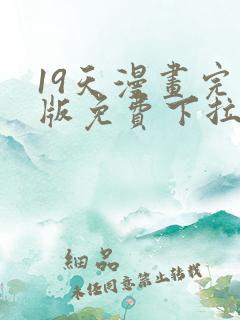 19天漫畫完
版免費下拉
細品
未任同意禁止转载